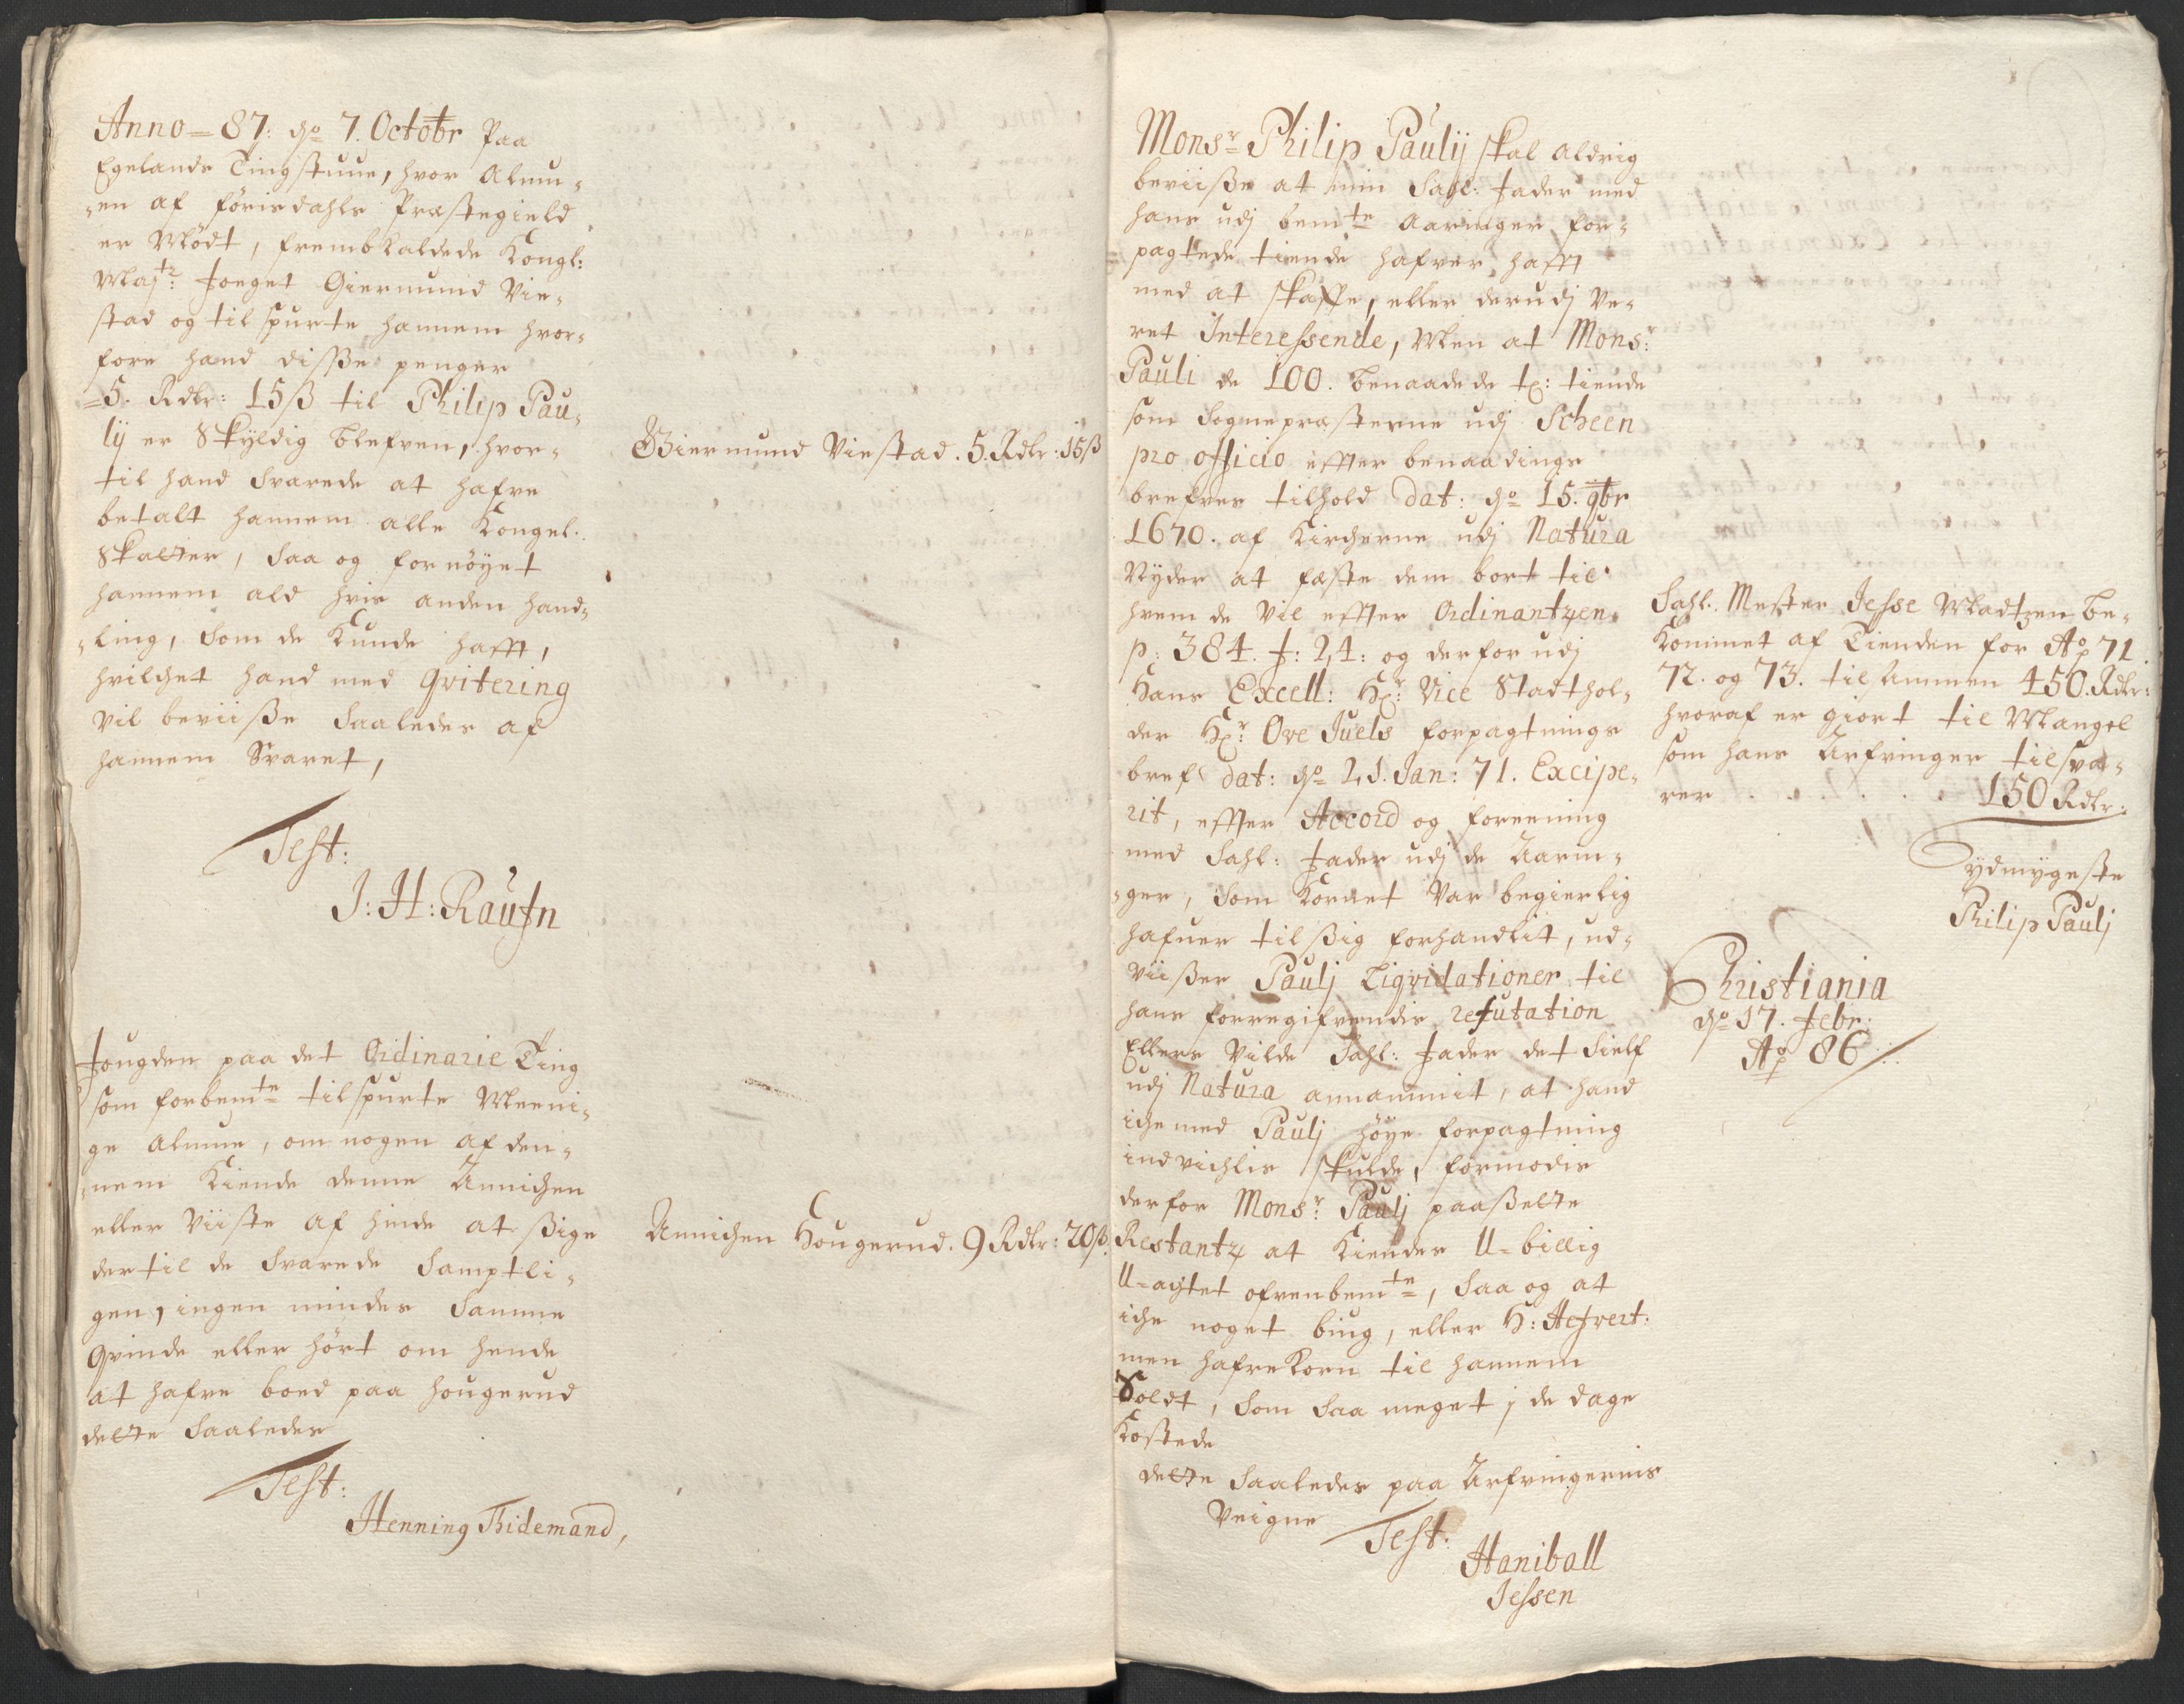 Anno = 87: dº 7. Octobr Paa
Egelands Tingstuue, hvor Almu¬
¬en af förisdahls Præstegield
er Mödt, frembkaldede Kongl:
Maÿtz: foeget Giermund Vie¬
stad og til spurte hannem hvor¬
fore hand disße penger
=5. Rdlr: 15ß til Philip Pau¬
lÿ er Skÿldig blefven, hvor¬
til hand Svarede at hafve
betalt hannem alle Kongel:
Skatter, Saa og fornöÿet
hannem ald hvis anden hand¬
¬ling, Som de Kunde hafft,
hvilchet hand med Qvitering
vil beviiße Saaledes af
hannem Svaret,
Test:
J: H: Raufn
Giermund Viestad. 5. Rdlr: 15ß
fougden paa det Ordinarie Ting
som forbemte tilspurte Meeni¬
ge Almue, om nogen af den¬
¬nem Kiende denne Annichen
eller Viiste af hinde at ßige
dertil de Svarede Samptli¬
gen, ingen mindes Samme
Qvinde eller hört om hende
at hafve boed paa Hougerud
dette Saaledes
Test:
Henning Tidemand,
Annichen Hougerud. 9 Rdlr: 20ß.
Monsr Philip Paulÿ skal aldrig
beviiße at min Sahl: Fader med
hans udj bemte Aaringer for¬
pagtede tiende hafver hafft
med at skaffe, eller derudj Ve¬
ret Interessende, Men at Monsr:
Pauli de 100. benaadede tr: tiende
som Sognepræsterne udj Scheen
pro officio effter benaadings
brefves tilhold dat: dº 15. 9br
1670. af Kircherne udj Natura
Nÿder at fæste dem bort til
hvem de Vil effter Ordinantzen
p: 384. f: 24: og derfor udj
Hans Excell: Hr: Vice Stadthol¬
der Hr: Ove Juels forpagtnings
bref dat: dº 21. Jan: 71. Excipe¬
rit, effter Accord og foreening
med Sahl: Fader udj de Aarin¬
¬ger, Som Kornet Var begierlig
hafuer til ßig forhandlit, ud¬
viißer Paulj Liqvidationer til
hans forregifvendis refutation
Ellers Vilde Sahl: Fader det Sielf
udj Natura annammit, at hand
iche med Paulj höÿe forpagtning
indvichlis skulde, formodis
derfor Monsr: Paulj paaßatte
Restantz at Kiendes U=billig
U=agtet ofvenbemte, Saa og at
iche noget biug, eller H:
men hafreKorn til hannem
Soldt, Som Saa meget j de dage
Kostede
dette Saaledes paa Arfvingernis
Veigne
Test:
Haniball
Jessen
Sahl. Mester Jesse Madtzen be¬
Kommet af Tienden for Aº 71.
72. og 73. til Ammen 450. Rdlr:
hvoraf er giort til Mangel
som hans Arfvinger tilsva¬
rer . . . . . 150 Rdlr:
Ydmygeste
Philip Paulj
Christiania
dº 17. Febr:
Aº 86